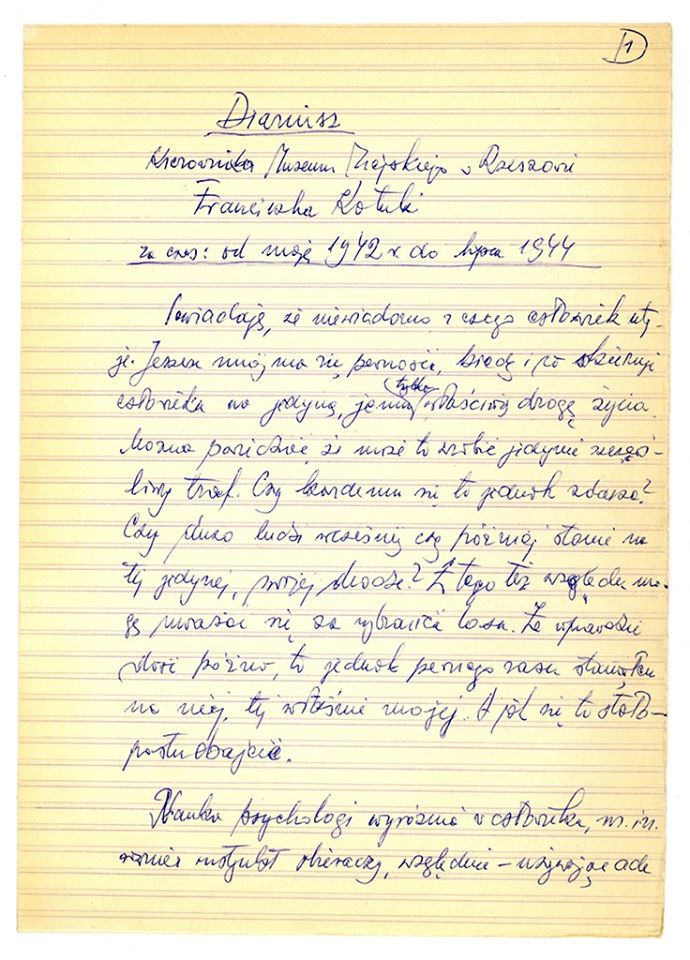 1
Diariusz
Kierownika Muzeum Miejskiego w Rzeszowie
Franciszka Kotuli
za czas: od maja 1942 r do lipca 1944
Powiadają, że niewiadomo z czego człowiek uty-
je. Jeszcze mniej ma się pewności, kiedy i co skieruje
człowieka na jedyną, jemu tylko właściwą drogę życia.
Można powiedzieć, że może to zrobić jedynie szczęś-
liwy traf. Czy każdemu się to jednak zdarza?
Czy dużo ludzi wcześniej czy później stanie na
tej jedynej, swojej drodze? Z tego też względu mo-
gę uważać się za wybrańca losu. Że wprawdzie
dość późno, to jednak pewnego razu stanąłem
na niej, tej właśnie mojej. A jak się to stało –
posłuchajcie.
Nauka psychologi wyróżnia w człowieku, m. in.
również instynkt zbieraczy, względnie – używając